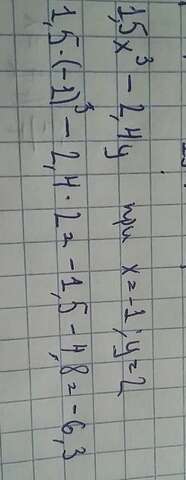 1,5x³ - 2,4y при x=-1; y=2
1,5·(-1)³ - 2,4·2= -1,5 - 4,8= -6,3